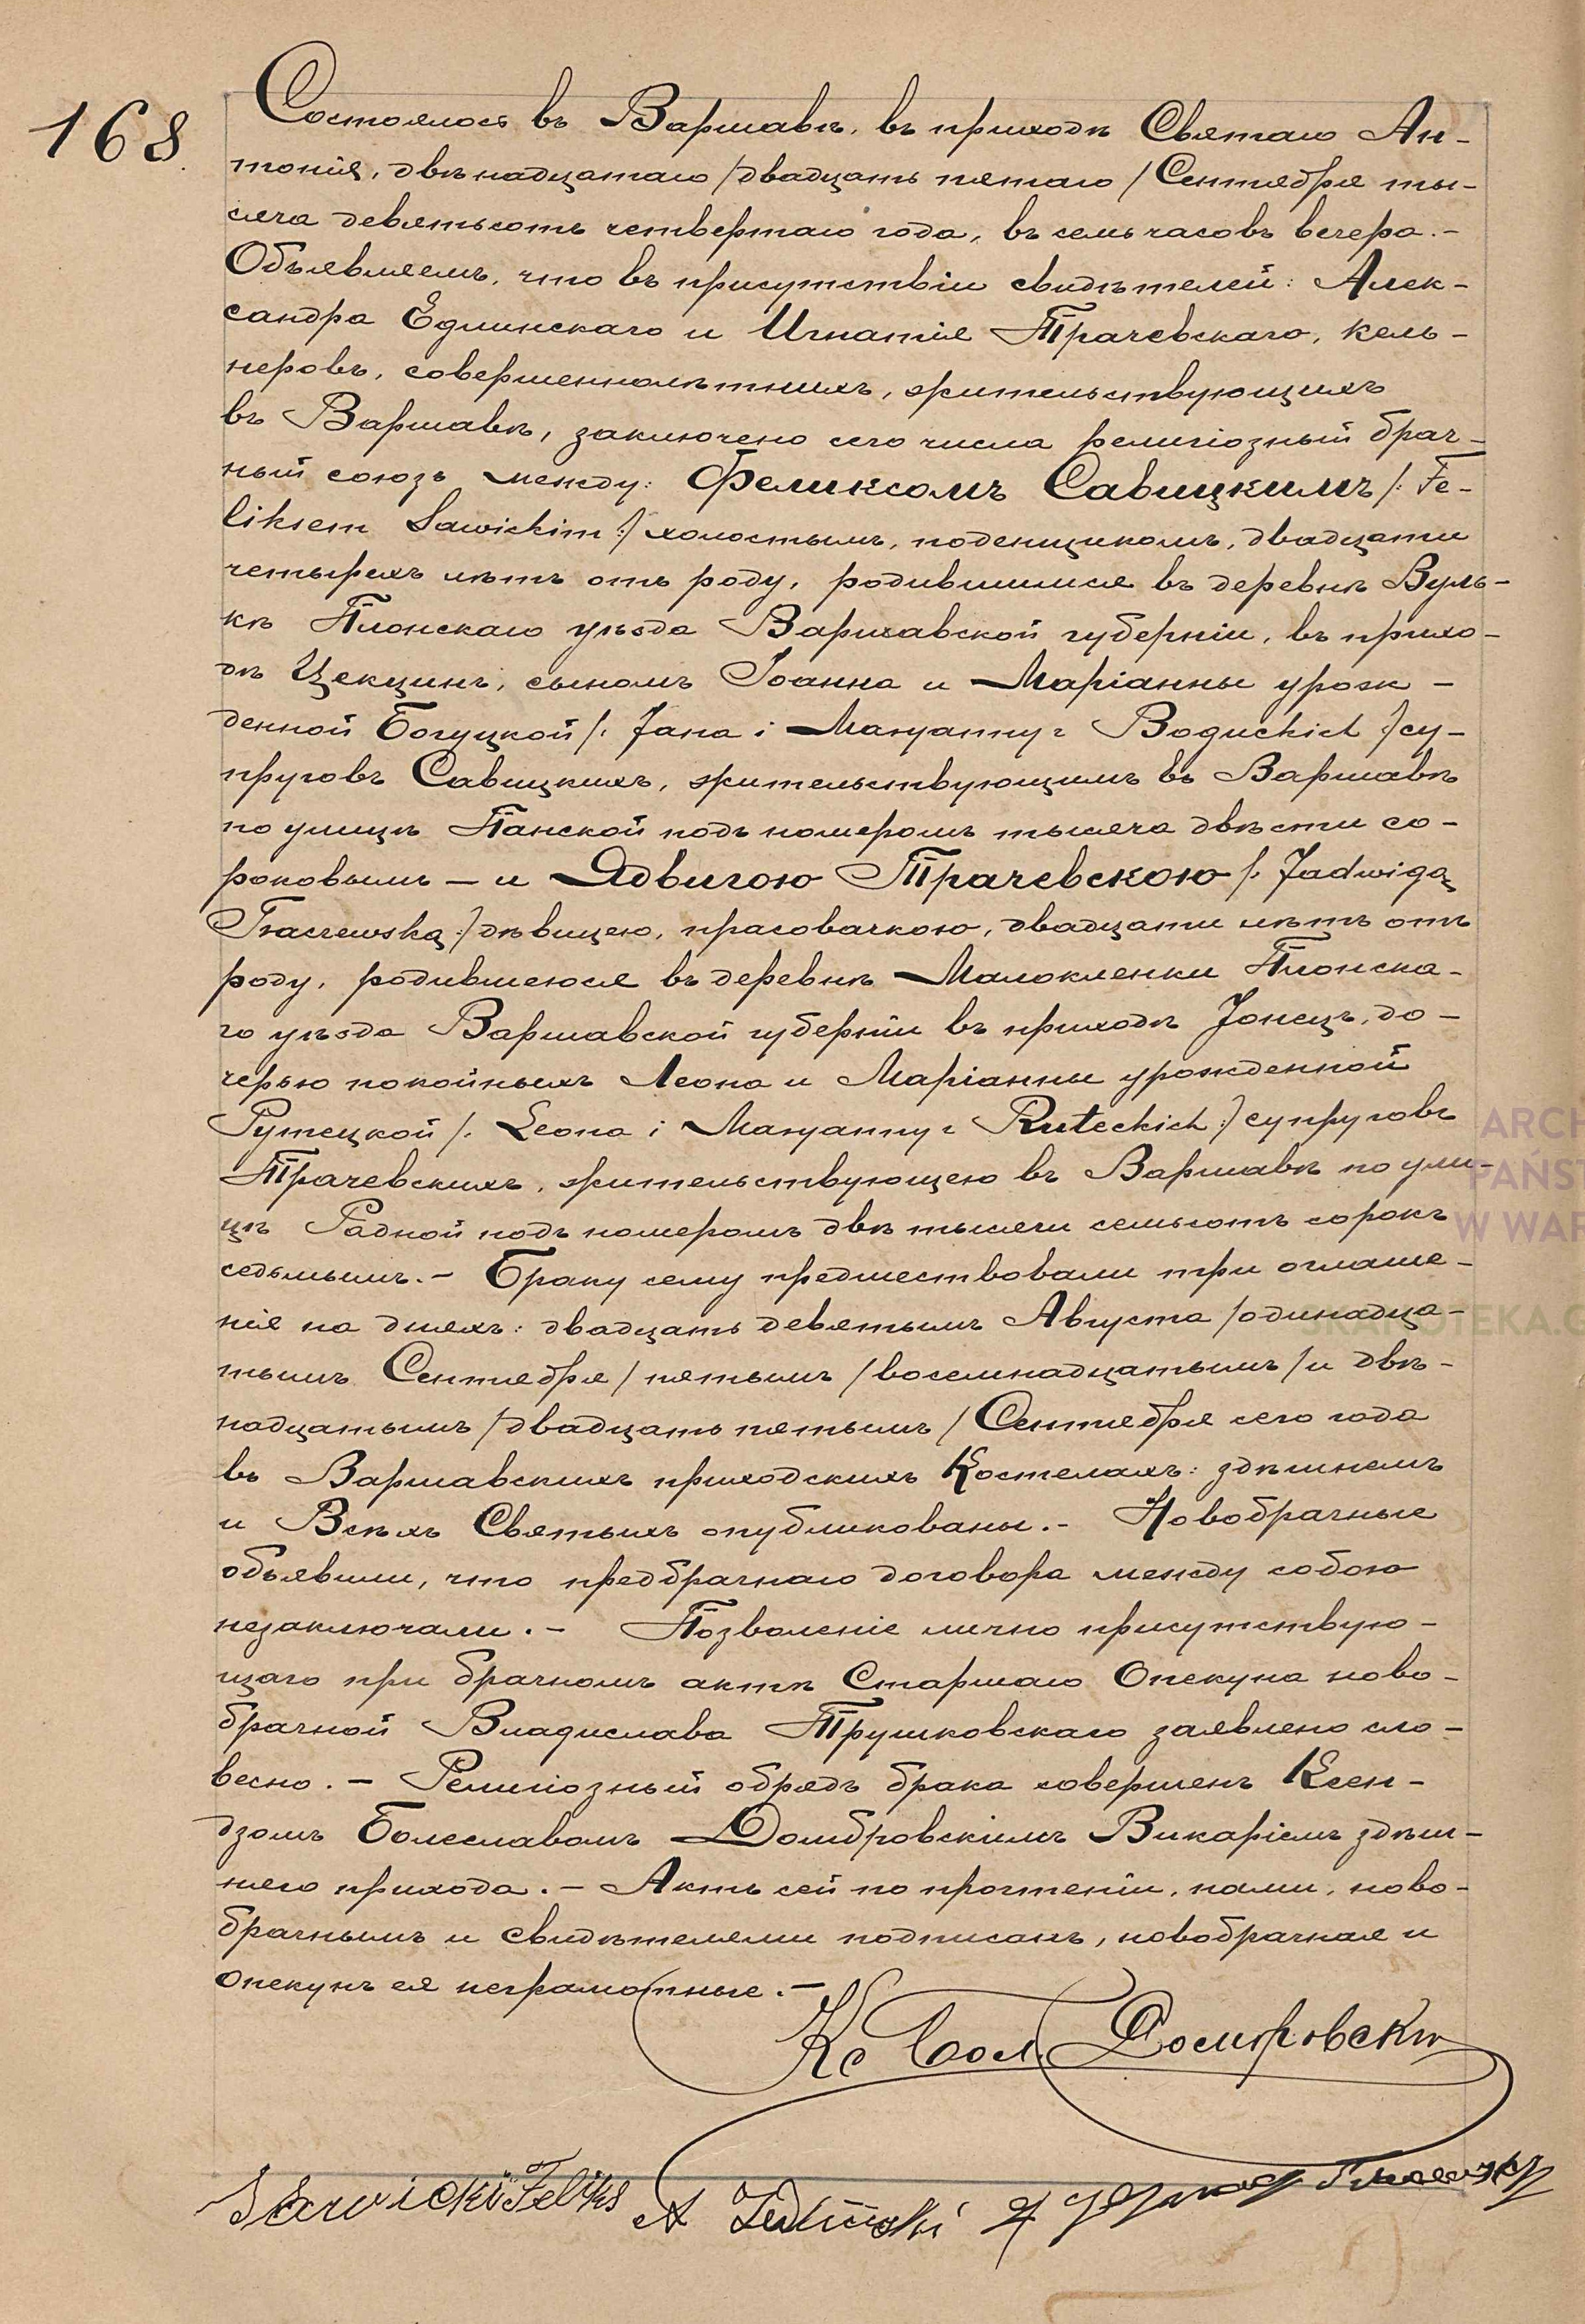 168.
Состоялось въ Варшавѣ, въ приходѣ Святаго Ан-
тонія, двѣнадцатаго /двадцать пятаго/ Сентября ты-
сяча девятьсотъ четвертаго года, въ семь часовъ вечера.-
Объявляемъ, что въ присутствіи свидѣтелей: Алек-
сандра Едлинскаго и Игнатія Трачевскаго, кель-
неровъ, совершеннолѣтнихъ, жительствующихъ
въ Варшавѣ, заключено сего числа религіозный брач-
ный союзъ между: Феликсомъ Савицкимъ /: Fe-
liksem Sawickim :/ холостымъ, поденщикомъ, двадцати
четырехъ лѣтъ отъ роду, родившимися въ деревнѣ Вуль-
кѣ Плонскаго уѣзда Варшавской губерніи, въ прихо-
дѣ Цекцинъ, сыномъ Іоанна и Маріанны урож-
денной Богуцкой /: Jana i Maryanny z Boguckich :/ су-
пруговъ Савицкихъ, жительствующимъ въ Варшавѣ
по улицѣ Панской подъ номеромъ тысяча двѣсти со-
роковымъ - и Ядвигою Трачевскою /: Jadwigą
Traczewską :/ дѣвицею, прасовачкою, двадцати лѣтъ отъ
роду, родившеюся въ деревнѣ Малокленки Плонска-
го уѣзда Варшавской губерніи въ приходѣ Јонецъ, до-
черью покойныхъ Леона и Маріанны урожденной
Рутецкой /: Leona i Maryanny z Ruteckich :/ супруговъ
Трачевскихъ, жительствующею въ Варшавѣ по ули-
цѣ Радной подъ номеромъ двѣ тысячи семьсотъ сорокъ
седьмымъ.- Браку сему предшествовали три оглаше-
нія на дняхъ: двадцать девятымъ Августа /одинадца-
тымъ Сентября/ пятымъ /восемнадцатымъ/ и двѣ-
надцатымъ /двадцать пятымъ/ Сентября сего года
въ Варшавскихъ приходскихъ Костелахъ: здѣшнемъ
и Всѣхъ Святыхъ опубликованы.- Новобрачные
объявили, что предбрачнаго договора между собою
незаключали.- Позволеніе лично присутствую-
щаго при брачномъ актѣ Старшаго Опекуна ново-
брачной Владислава Трушковскаго заявлено сло-
весно.- Религіозный обрядъ брака совершенъ Ксен-
дзомъ Болеславомъ Домбровскимъ Викаріемъ здѣш-
няго прихода.- Актъ сей по прочтеніи, нами, ново-
брачнымъ и свидѣтелями подписанъ, новобрачная и
опекунъ ея неграмотные.-
Кс Бол. Домбровскі
Sawicki Feliks A Jedliński
ARCH
PAŃST
W WAR
SKANOTEKA.G